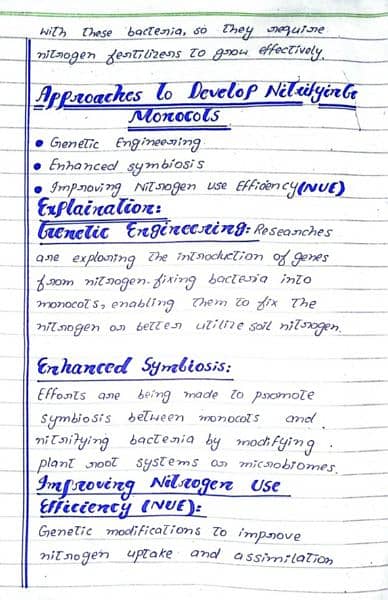 with these bacteria, so they require
nitrogen fertilizers to grow effectively.
Approaches to Develop Nitrifying
Monocots
• Genetic Engineering
• Enhanced symbiosis
• Improving Nitrogen use Efficiency(NUE)
Explaination:
Genetic Engineering: Researches
are exploring the introduction of genes
from nitrogen-fixing bacteria into
monocots, enabling them to fix the
nitrogen or better utilize soil nitrogen.
Enhanced Symbiosis:
Efforts are being made to promote
symbiosis between monocots and
nitrifying bacteria by modifying
plant root systems or microbiomes.
Improving Nitrogen Use
Efficiency (NUE):
Genetic modifications to improve
nitrogen uptake and assimilation